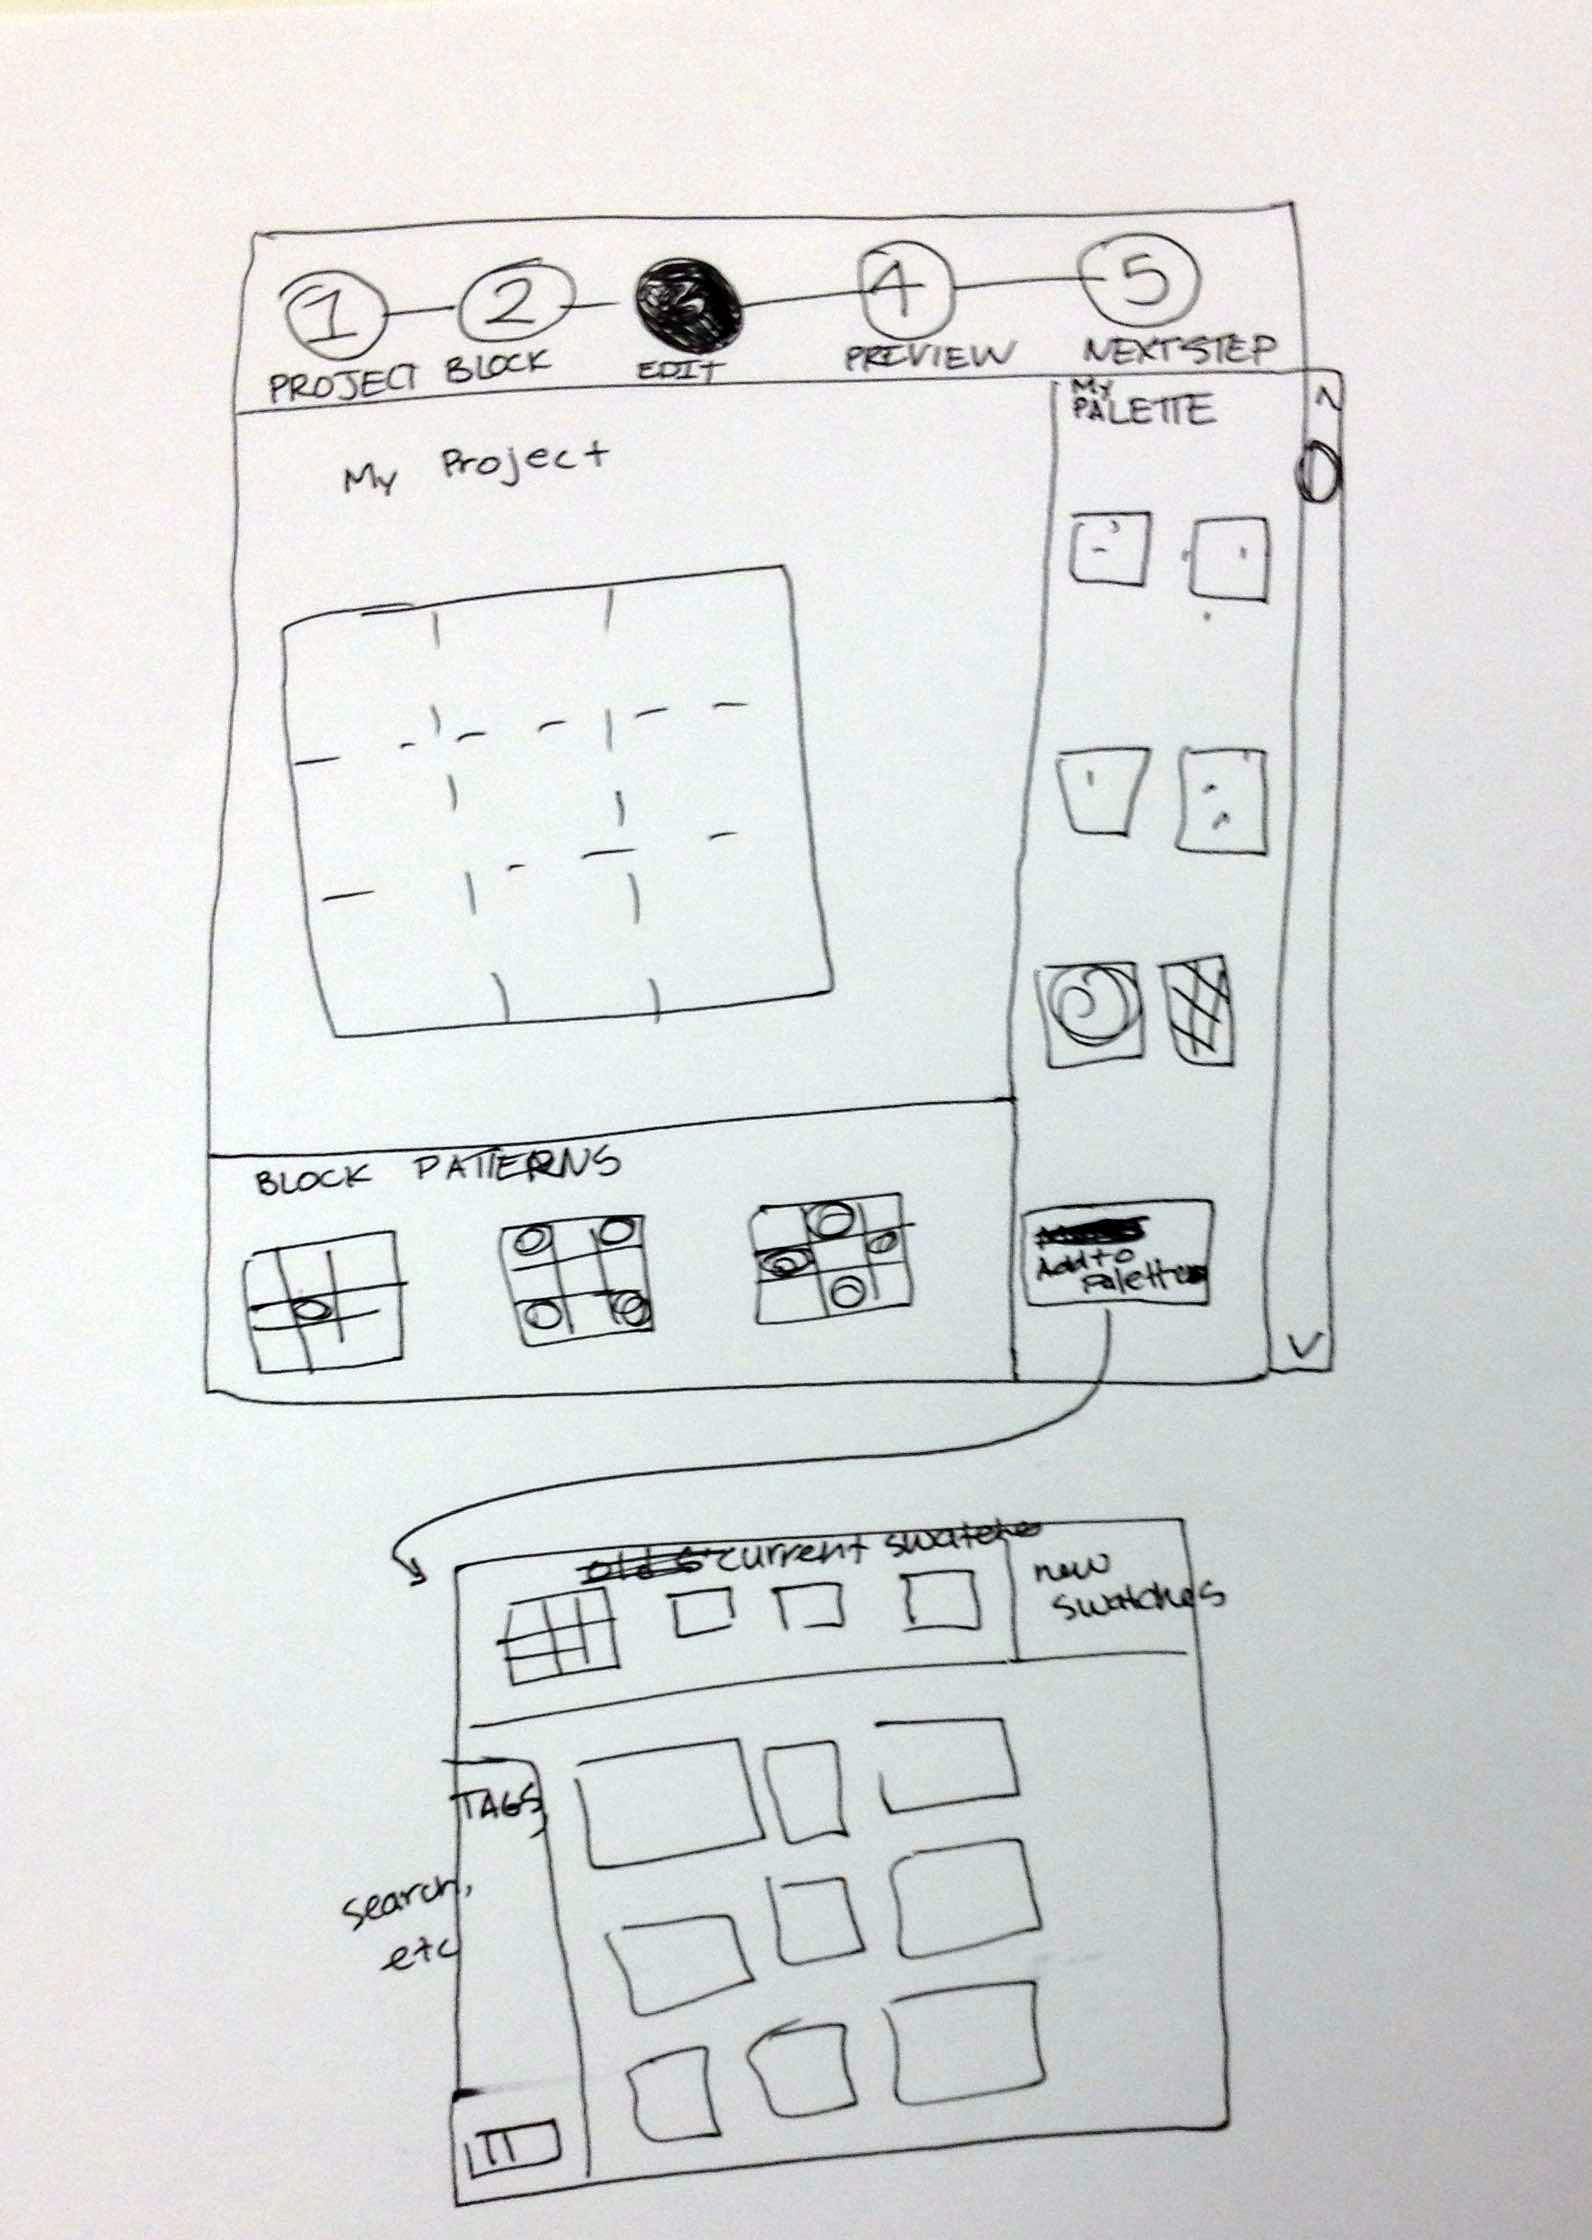 1 2 4 5
PROJECT BLOCK EDIT PREVIEW NEXT STEP
My
PALETTE
My Project
BLOCK PATTERNS
Add to
Palette
current swatche
new
swatches
TAGS
search,
etc